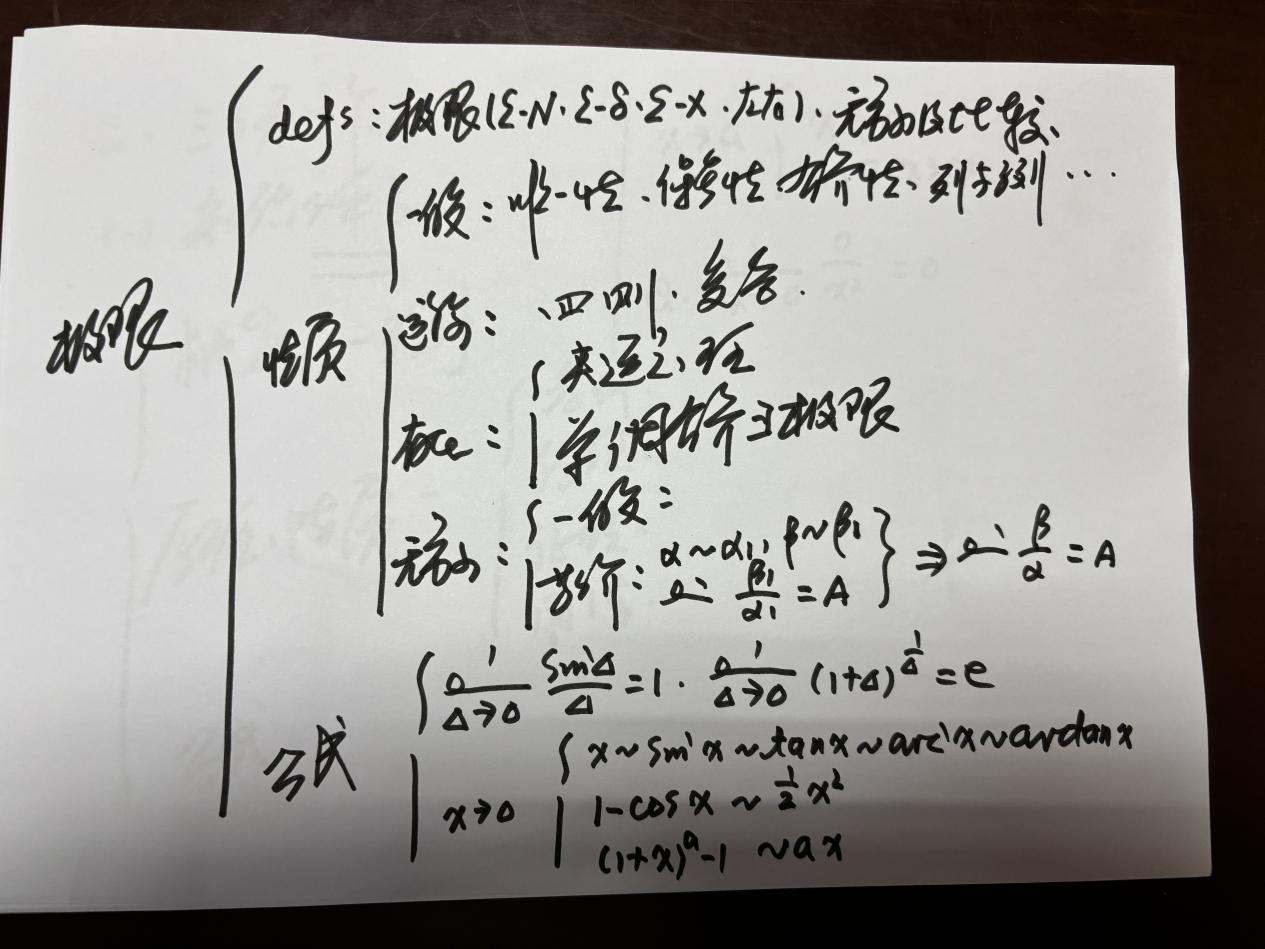 defs: 极限(ε-N·ε-δ·ε-X·左右)、无穷小及比较、
一般:唯一性、保号性、有界性、列与子列…
极限
运算:四则、复合.
性质
夹逼定理
存在:
单调有界∃极限
一般:
无穷小:
等价:α~α₁, β~β₁
lim β₁/α₁ = A } ⇒ lim β/α = A
lim Δ→0 sinΔ/Δ = 1. lim Δ→0 (1+Δ)^(1/Δ) = e
公式
x ~ sin x ~ tan x ~ arc x ~ arctan x
x→0
1-cos x ~ 1/2 x²
(1+x)^a - 1 ~ ax